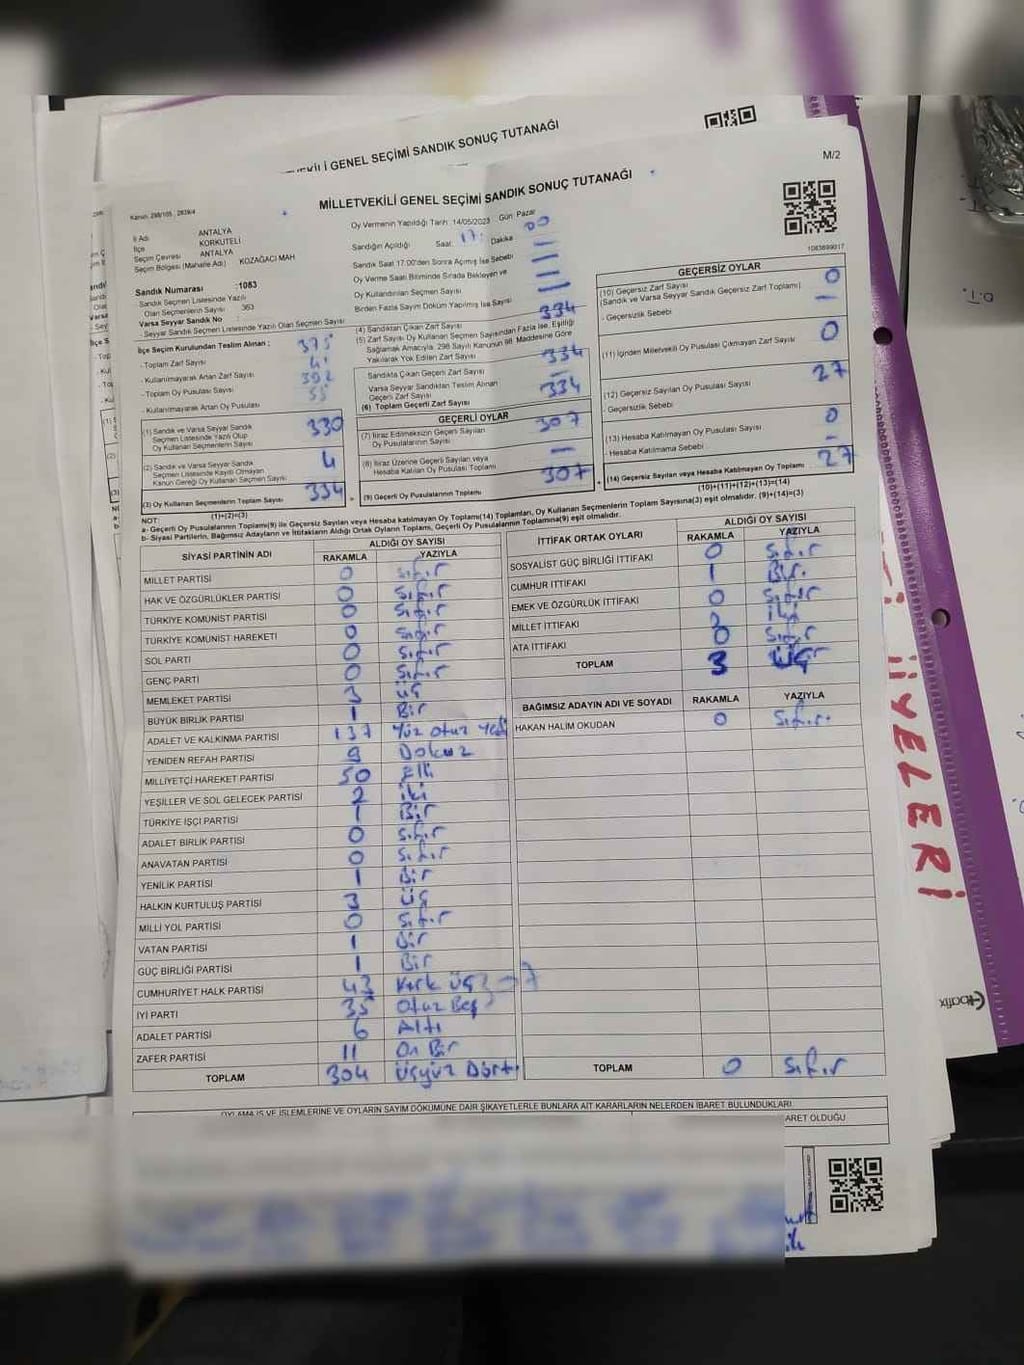 MİLLETVEKİLİ GENEL SEÇİMİ SANDIK SONUÇ TUTANAĞI
M/2
MİLLETVEKİLİ GENEL SEÇİMİ SANDIK SONUÇ TUTANAĞI
Kanun: 298/105 , 2839/4
İl Adı ANTALYA
İlçe KORKUTELİ
Seçim Çevresi ANTALYA
Seçim Bölgesi (Mahalle Adı) KOZAĞACI MAH
Sandık Numarası :1083
Sandık Seçmen Listesinde Yazılı
Olan Seçmenlerin Sayısı 363
Varsa Seyyar Sandık No
- Seyyar Sandık Seçmen Listesinde Yazılı Olan Seçmen Sayısı
İlçe Seçim Kurulundan Teslim Alınan ;
- Toplam Zarf Sayısı 375
- Kullanılmayarak Artan Zarf Sayısı 41
- Toplam Oy Pusulası Sayısı
- Kullanılmayarak Artan Oy Pusulası
(1) Sandık ve Varsa Seyyar Sandık
Seçmen Listesinde Yazılı Olup
Oy Kullanan Seçmenlerin Sayısı 330
(2) Sandık ve Varsa Seyyar Sandık
Seçmen Listesinde Kayıtlı Olmayan
Kanun Gereği Oy Kullanan Seçmen Sayısı 4
(3) Oy Kullanan Seçmenlerin Toplam Sayısı 334
(1)+(2)=(3)
Oy Vermenin Yapıldığı Tarih :14/05/2023 Gün: Pazar
Sandığın Açıldığı Saat 17: Dakika 00
Sandık Saat 17:00'den Sonra Açılmış İse Sebebi —
Oy Verme Saati Bitiminde Sırada Bekleyen ve
Oy Kullandırılan Seçmen Sayısı —
Birden Fazla Sayım Döküm Yapılmış İse Sayısı —
(4) Sandıktan Çıkan Zarf Sayısı 334
(5) Zarf Sayısı Oy Kullanan Seçmen Sayısından Fazla İse, Eşitliği
Sağlamak Amacıyla, 298 Sayılı Kanunun 98. Maddesine Göre
Yakılarak Yok Edilen Zarf Sayısı —
Sandıkta Çıkan Geçerli Zarf Sayısı 334
Varsa Seyyar Sandıktan Teslim Alınan
Geçerli Zarf Sayısı —
(6) Toplam Geçerli Zarf Sayısı 334
GEÇERLİ OYLAR
(7) İtiraz Edilmeksizin Geçerli Sayılan
Oy Pusulalarının Sayısı 307
(8) İtiraz Üzerine Geçerli Sayılan veya
Hesaba Katılan Oy Pusulası Toplamı —
(9) Geçerli Oy Pusulalarının Toplamı 307
1083899017
GEÇERSİZ OYLAR
(10) Geçersiz Zarf Sayısı
(Sandık ve Varsa Seyyar Sandık Geçersiz Zarf Toplamı) 0
- Geçersizlik Sebebi —
(11) İçinden Milletvekili Oy Pusulası Çıkmayan Zarf Sayısı 0
(12) Geçersiz Sayılan Oy Pusulası Sayısı 27
- Geçersizlik Sebebi
(13) Hesaba Katılmayan Oy Pusulası Sayısı 0
- Hesaba Katılmama Sebebi —
(14) Geçersiz Sayılan veya Hesaba Katılmayan Oy Toplamı 27
(10)+(11)+(12)+(13)=(14)
NOT:
a- Geçerli Oy Pusulalarının Toplamı(9) ile Geçersiz Sayılan veya Hesaba katılmayan Oy Toplamı(14) Toplamları, Oy Kullanan Seçmenlerin Toplam Sayısına(3) eşit olmalıdır. (9)+(14)=(3)
b- Siyasi Partilerin, Bağımsız Adayların ve İttifakların Aldığı Ortak Oyların Toplamı, Geçerli Oy Pusulalarının Toplamına(9) eşit olmalıdır.
SİYASİ PARTİNİN ADI ALDIĞI OY SAYISI
RAKAMLA YAZIYLA
MİLLET PARTİSİ 0 Sıfır
HAK VE ÖZGÜRLÜKLER PARTİSİ 0 Sıfır
TÜRKİYE KOMÜNİST PARTİSİ 0 Sıfır
TÜRKİYE KOMÜNİST HAREKETİ 0 Sıfır
SOL PARTİ 0 Sıfır
GENÇ PARTİ 0 Sıfır
MEMLEKET PARTİSİ 3 üç
BÜYÜK BİRLİK PARTİSİ 1 Bir
ADALET VE KALKINMA PARTİSİ 137 Yüz otuz Yedi
YENİDEN REFAH PARTİSİ 9 Dokuz
MİLLİYETÇİ HAREKET PARTİSİ 50 Elli
YEŞİLLER VE SOL GELECEK PARTİSİ 2 iki
TÜRKİYE İŞÇİ PARTİSİ 1 Bir
ADALET BİRLİK PARTİSİ 0 Sıfır
ANAVATAN PARTİSİ 0 Sıfır
YENİLİK PARTİSİ 1 Bir
HALKIN KURTULUŞ PARTİSİ 3 üç
MİLLİ YOL PARTİSİ 0 Sıfır
VATAN PARTİSİ 1 Bir
GÜÇ BİRLİĞİ PARTİSİ 1 Bir
CUMHURİYET HALK PARTİSİ 43 Kırk üç
İYİ PARTİ 35 Otuz Beş
ADALET PARTİSİ 6 Altı
ZAFER PARTİSİ 11 On Bir
TOPLAM 304 Üçyüz Dört
İTTİFAK ORTAK OYLARI ALDIĞI OY SAYISI
RAKAMLA YAZIYLA
SOSYALİST GÜÇ BİRLİĞİ İTTİFAKI 0 Sıfır
CUMHUR İTTİFAKI 1 Bir
EMEK VE ÖZGÜRLÜK İTTİFAKI 0 Sıfır
MİLLET İTTİFAKI 2 iki
ATA İTTİFAKI 0 Sıfır
TOPLAM 3 ÜÇ
BAĞIMSIZ ADAYIN ADI VE SOYADI RAKAMLA YAZIYLA
HAKAN HALİM OKUDAN 0 Sıfır
TOPLAM 0 Sıfır
OYLAMA İŞ VE İŞLEMLERİNE VE OYLARIN SAYIM DÖKÜMÜNE DAİR ŞİKAYETLERLE BUNLARA AİT KARARLARIN NELERDEN İBARET BULUNDUKLARI
ARET OLDUĞU
ÜYELERİ